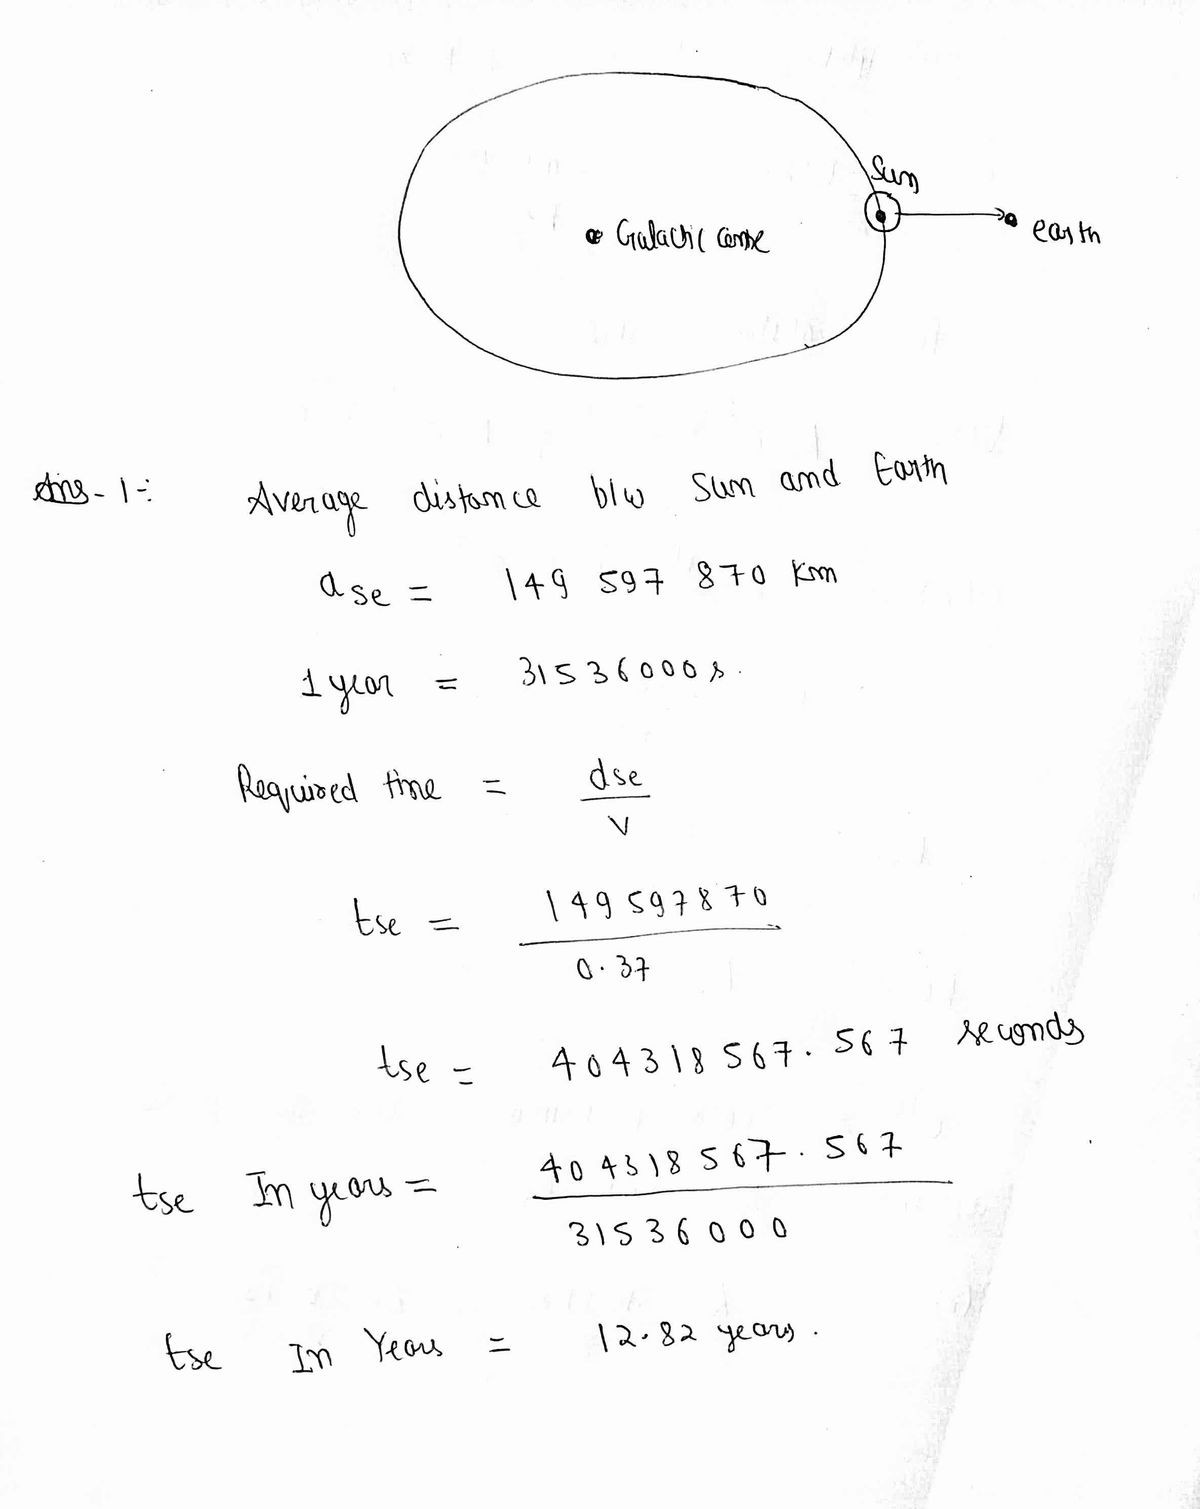 Sun
Galactic centre
earth
Ans-1:- Average distance b/w Sun and Earth
dse = 149 597 870 Km
1 year = 31536000 s.
Required time = dse
V
tse = 149597870
0.37
tse = 404318567.567 seconds
tse In years = 404318567.567
31536000
tse In Years = 12.82 years.